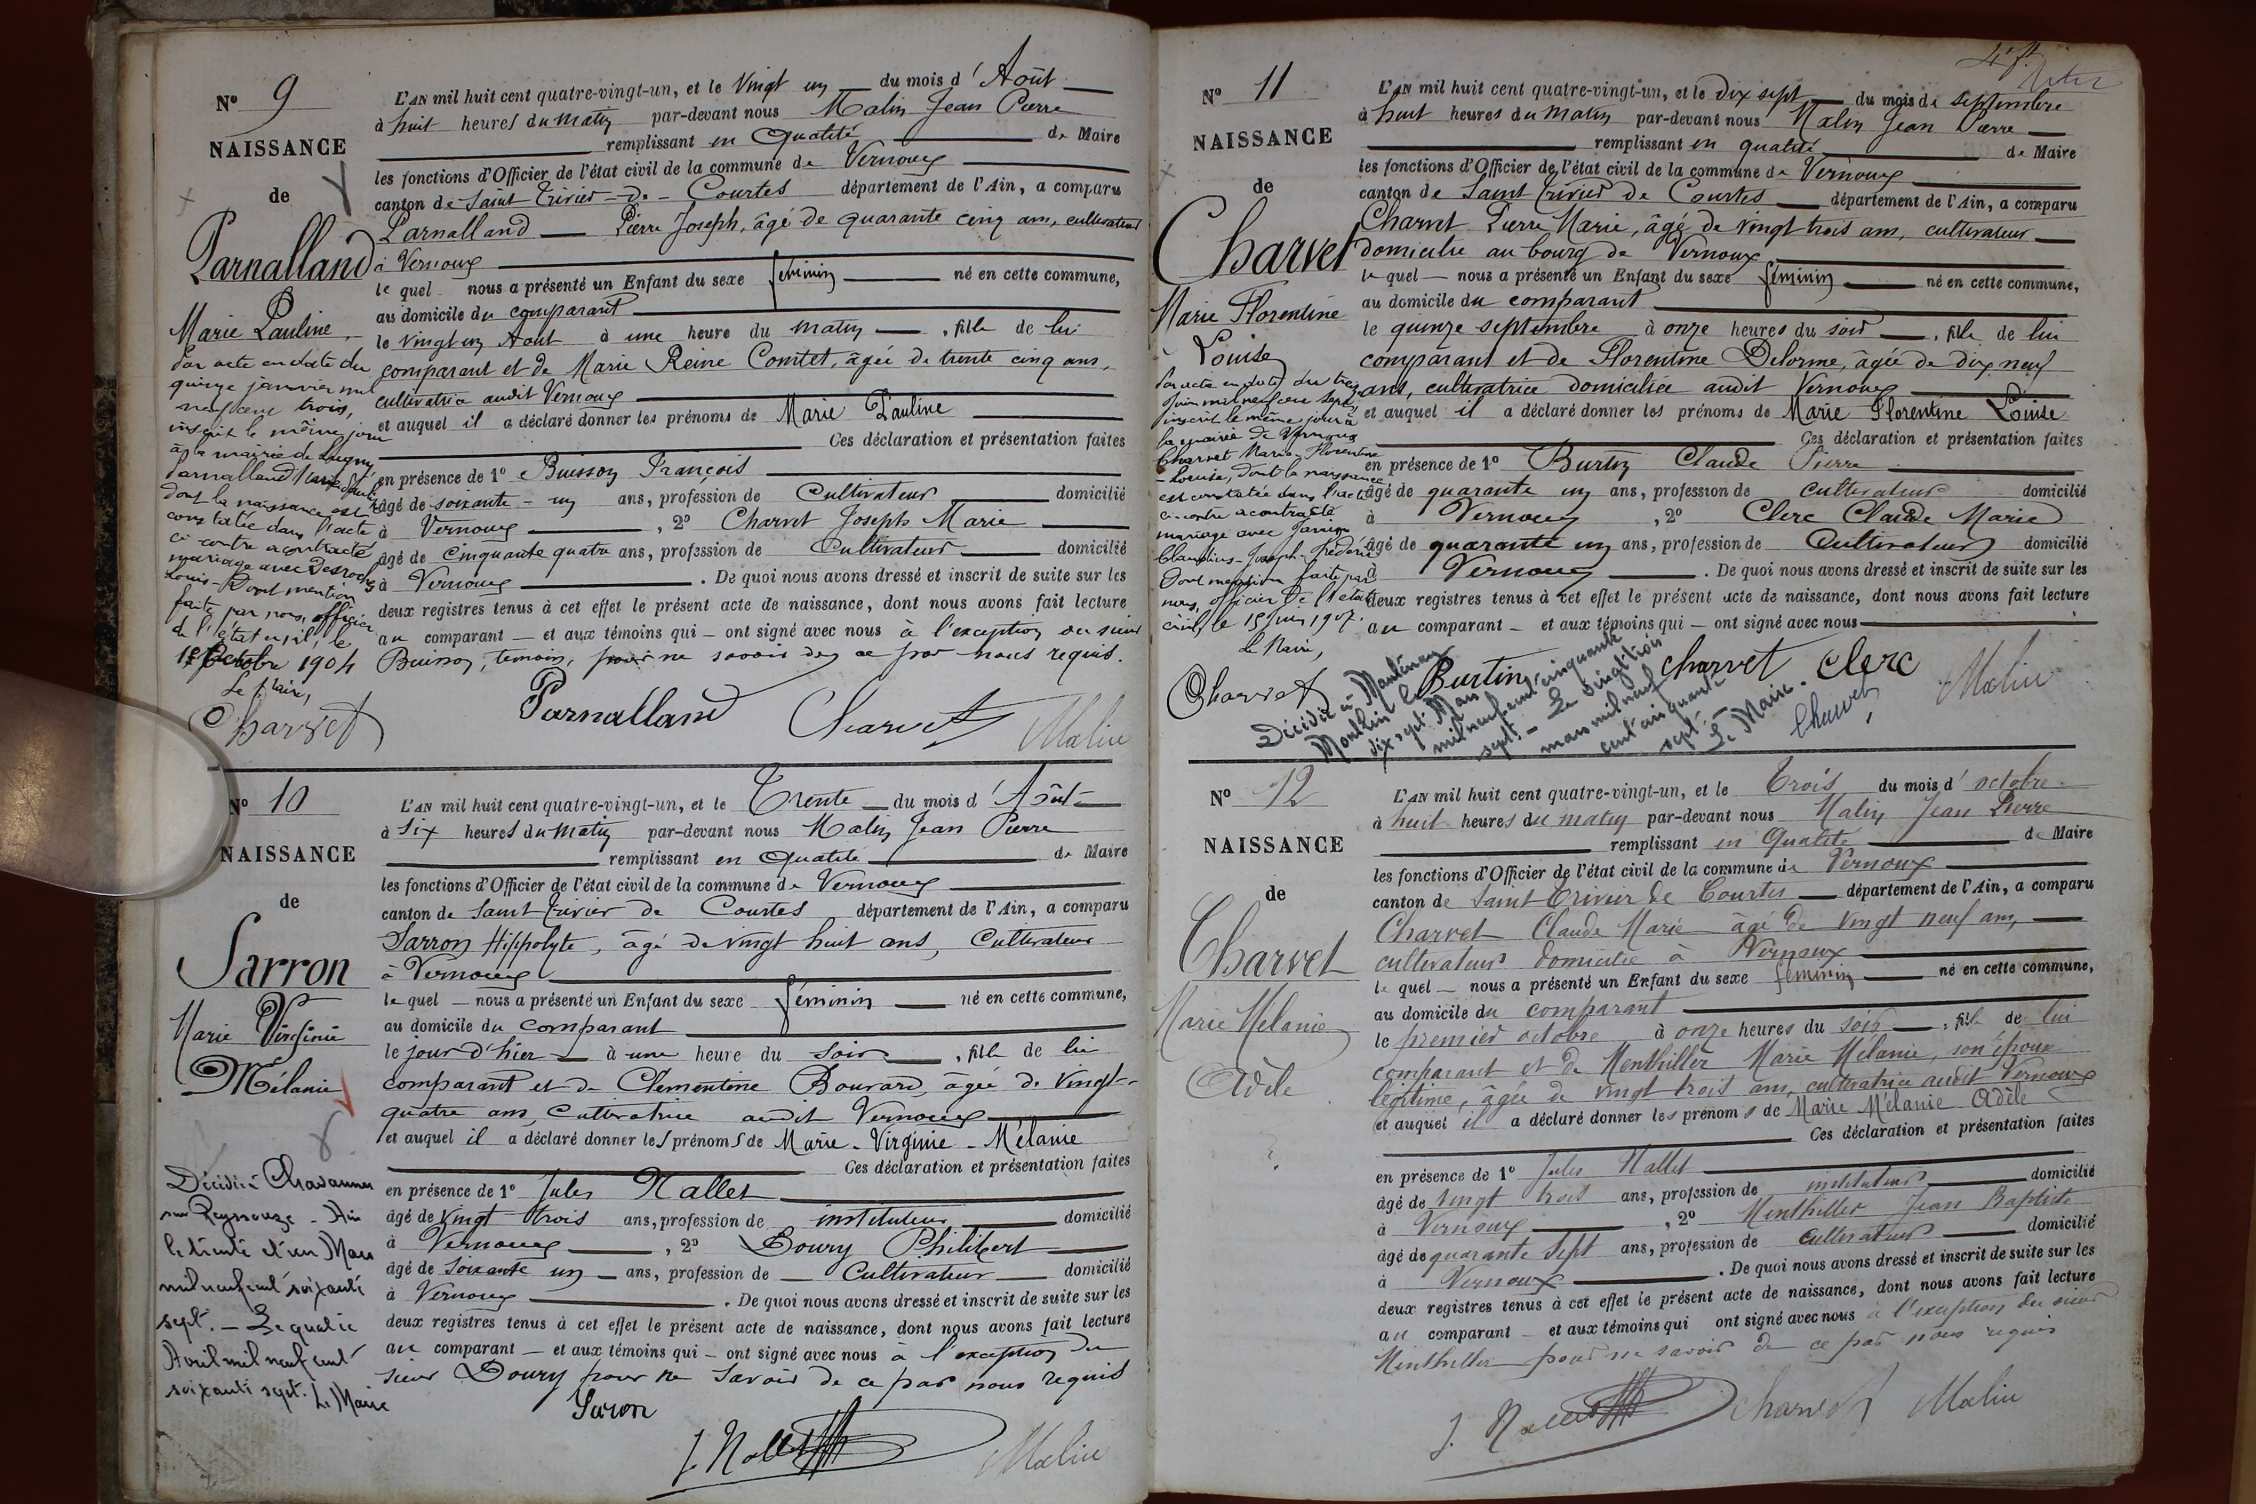 Nº 9
NAISSANCE
de
Parnalland
Marie Pauline
Par acte en date du
quinze janvier mil
neuf cent trois,
inscrit le même jour
à la mairie de Lugny,
Parnalland Marie Pauline
dont la naissance est
constatée dans l'acte
ci contre a contracté
mariage avec Desroches
Louis - Dont mention
faite par nous, officier
de l'état civil, le
1er Octobre 1904
Le Maire,
Charvet
L'AN mil huit cent quatre-vingt-un, et le Vingt un du mois d'Août
à huit heures du matin par-devant nous Malin Jean Pierre
remplissant en Qualité de Maire
les fonctions d'Officier de l'état civil de la commune de Vernoux
canton de Saint Trivier-de-Courtes département de l'Ain, a comparu
Parnalland Pierre Joseph, âgé de quarante cinq ans, cultivateur
à Vernoux
le quel nous a présenté un Enfant du sexe féminin né en cette commune,
au domicile du comparant
le vingt un Aout à une heure du matin, fille de lui
comparant et de Marie Reine Comtet, âgée de trente cinq ans,
cultivatrice audit Vernoux
et auquel il a déclaré donner les prénoms de Marie Pauline
Ces déclaration et présentation faites
en présence de 1º Buisson François
âgé de soixante-un ans, profession de Cultivateur domicilié
à Vernoux, 2º Charvet Joseph Marie
âgé de cinquante quatre ans, profession de Cultivateur domicilié
à Vernoux. De quoi nous avons dressé et inscrit de suite sur les
deux registres tenus à cet effet le présent acte de naissance, dont nous avons fait lecture
au comparant - et aux témoins qui - ont signé avec nous à l'exception du sieur
Buisson, temoin, pour ne savoir de ce par nous requis.
Parnalland Charvet Malin
Nº 10
NAISSANCE
de
Sarron
Marie Virginie
Mélanie
Décédée à Chavannes
sur Reyssouze - Ain
le trente et un Mars
mil neuf cent soixante
sept. - Le quatre
Avril mil neuf cent
soixante sept. Le Maire
L'AN mil huit cent quatre-vingt-un, et le Trente du mois d'Août
à six heures du matin par-devant nous Malin Jean Pierre
remplissant en Qualité de Maire
les fonctions d'Officier de l'état civil de la commune de Vernoux
canton de Saint Trivier de Courtes département de l'Ain, a comparu
Sarron Hippolyte, âgé de vingt huit ans, Cultivateur
à Vernoux
le quel - nous a présenté un Enfant du sexe féminin né en cette commune,
au domicile du comparant
le jour d'hier à une heure du soir, fille de lui
comparant et de Clementine Bouvard, âgée de vingt-
quatre ans, Cultivatrice audit Vernoux
et auquel il a déclaré donner les prénoms de Marie-Virginie-Mélanie
Ces déclaration et présentation faites
en présence de 1º Jules Nallet
âgé de vingt trois ans, profession de instituteur domicilié
à Vernoux, 2º Doury Philibert
âgé de soixante un ans, profession de Cultivateur domicilié
à Vernoux. De quoi nous avons dressé et inscrit de suite sur les
deux registres tenus à cet effet le présent acte de naissance, dont nous avons fait lecture
au comparant - et aux témoins qui - ont signé avec nous à l'exception du
sieur Doury pour ne savoir de ce par nous requis
Saron
J. Nallet Malin
Nº 11
NAISSANCE
de
Charvet
Marie Florentine
Louise
Par acte en date du treize
juin mil neuf cent sept
inscrit le même jour à
la mairie de Vernoux
Charvet Marie-Florentine
-Louise, dont la naissance
est constatée dans l'acte
ci-contre a contracté
mariage avec
Claudius-Joseph-Frédéric
Dont mention faite par
nous, officier de l'état
civil, le 15 juin 1907.
Le Maire,
Charvet
L'AN mil huit cent quatre-vingt-un, et le dix sept du mois de septembre
à huit heures du matin par-devant nous Malin Jean Pierre
remplissant en qualité de Maire
les fonctions d'Officier de l'état civil de la commune de Vernoux
canton de Saint Trivier de Courtes département de l'Ain, a comparu
Charvet Pierre Marie, âgé de vingt trois ans, cultivateur
domicilié au bourg de Vernoux
le quel - nous a présenté un Enfant du sexe féminin né en cette commune,
au domicile du comparant
le quinze septembre à onze heures du soir, fille de lui
comparant et de Florentine Delorme, âgée de dix neuf
ans, cultivatrice domiciliée audit Vernoux
et auquel il a déclaré donner les prénoms de Marie Florentine Louise
Ces déclaration et présentation faites
en présence de 1º Burtin Claude Pierre
âgé de quarante un ans, profession de cultivateur domicilié
à Vernoux, 2º Clerc Claude Marie
âgé de quarante un ans, profession de Cultivateur domicilié
à Vernoux. De quoi nous avons dressé et inscrit de suite sur les
deux registres tenus à cet effet le présent acte de naissance, dont nous avons fait lecture
au comparant - et aux témoins qui - ont signé avec nous
Burtin Charvet Clerc Malin
Décédée à Mantenay
Montlin le
dix sept Mars
mil neuf cent cinquante
sept. - Le vingt trois
mars mil neuf
cent cinquante
sept. -
Le Maire.
Nº 12
NAISSANCE
de
Charvet
Marie Melanie
Adèle
L'AN mil huit cent quatre-vingt-un, et le Trois du mois d'octobre
à huit heures du matin par-devant nous Malin Jean Pierre
remplissant en Qualité de Maire
les fonctions d'Officier de l'état civil de la commune de Vernoux
canton de Saint Trivier de Courtes département de l'Ain, a comparu
Charvet Claude Marie âgé de vingt neuf ans,
cultivateur domicilié à Vernoux
le quel - nous a présenté un Enfant du sexe féminin né en cette commune,
au domicile du comparant
le premier octobre à onze heures du soir, fille de lui
comparant et de Menthiller Marie Mélanie, son épouse
légitime, âgée de vingt trois ans, cultivatrice audit Vernoux
et auquel il a déclaré donner les prénoms de Marie Mélanie Adèle
Ces déclaration et présentation faites
en présence de 1º Jules Nallet
âgé de vingt trois ans, profession de instituteur domicilié
à Vernoux, 2º Menthiller Jean Baptiste
âgé de quarante sept ans, profession de cultivateur domicilié
à Vernoux. De quoi nous avons dressé et inscrit de suite sur les
deux registres tenus à cet effet le présent acte de naissance, dont nous avons fait lecture
au comparant - et aux témoins qui ont signé avec nous à l'exception du sieur
Menthiller pour ne savoir de ce par nous requis
J. Nallet Charvet Malin